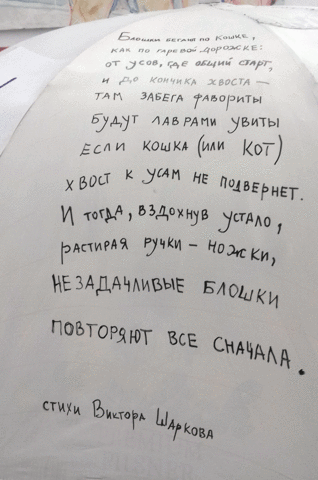 Блошки бегали по кошке,
как по гаревой дорожке:
от усов, где общий старт,
и до кончика хвоста —
там забега фавориты
будут лаврами увиты
если кошка (или кот)
хвост к усам не подвернет.
И тогда, вздохнув устало,
растирая ручки – ножки,
незадачливые блошки
повторяют все сначала.
стихи Виктора Шаркова